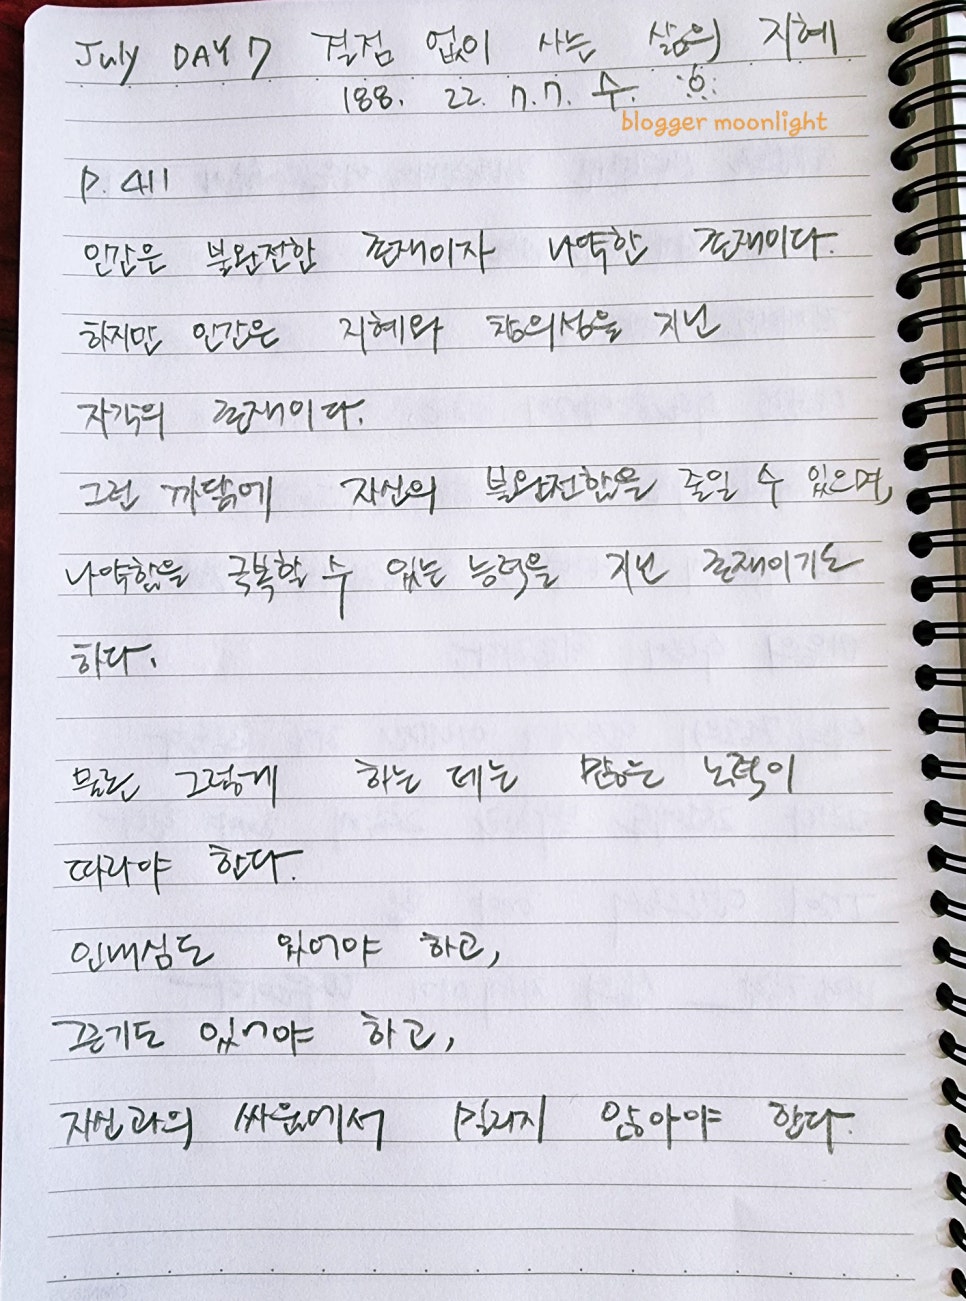 July DAY 7 결점 없이 사는 삶의 지혜
188. 22. 7. 7. 수.
blogger moonlight
P. 411
인간은 불완전한 존재이자 나약한 존재이다.
하지만 인간은 지혜와 창의성을 지닌
자각의 존재이다.
그런 까닭에 자신의 불완전함을 줄일 수 있으며,
나약함을 극복할 수 있는 능력을 지닌 존재이기도
하다.
물론 그렇게 하는 데는 많은 노력이
따라야 한다.
인내심도 있어야 하고,
끈기도 있어야 하고,
자신과의 싸움에서 밀리지 않아야 한다.